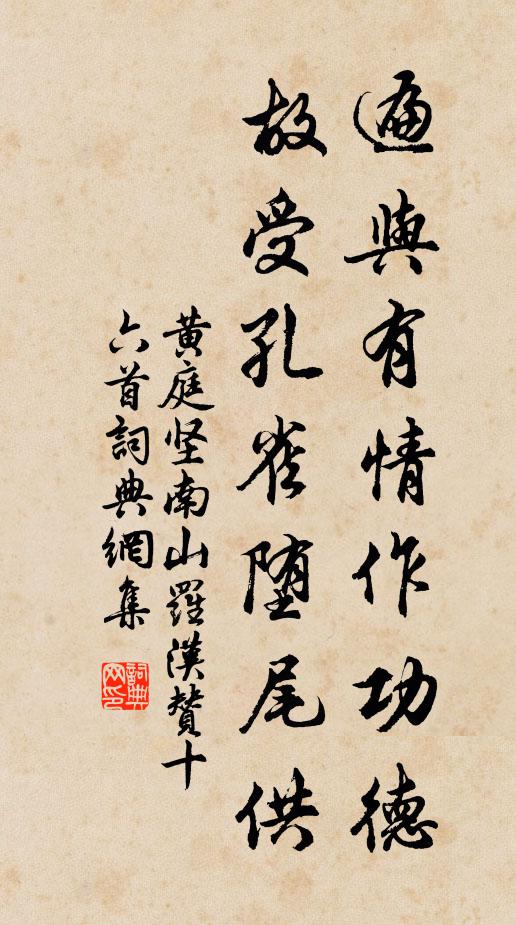 遍與有情作功德
故受孔雀堕尾供
黄庭坚南山羅漢贊十
六首詞典網集
詞典
网印